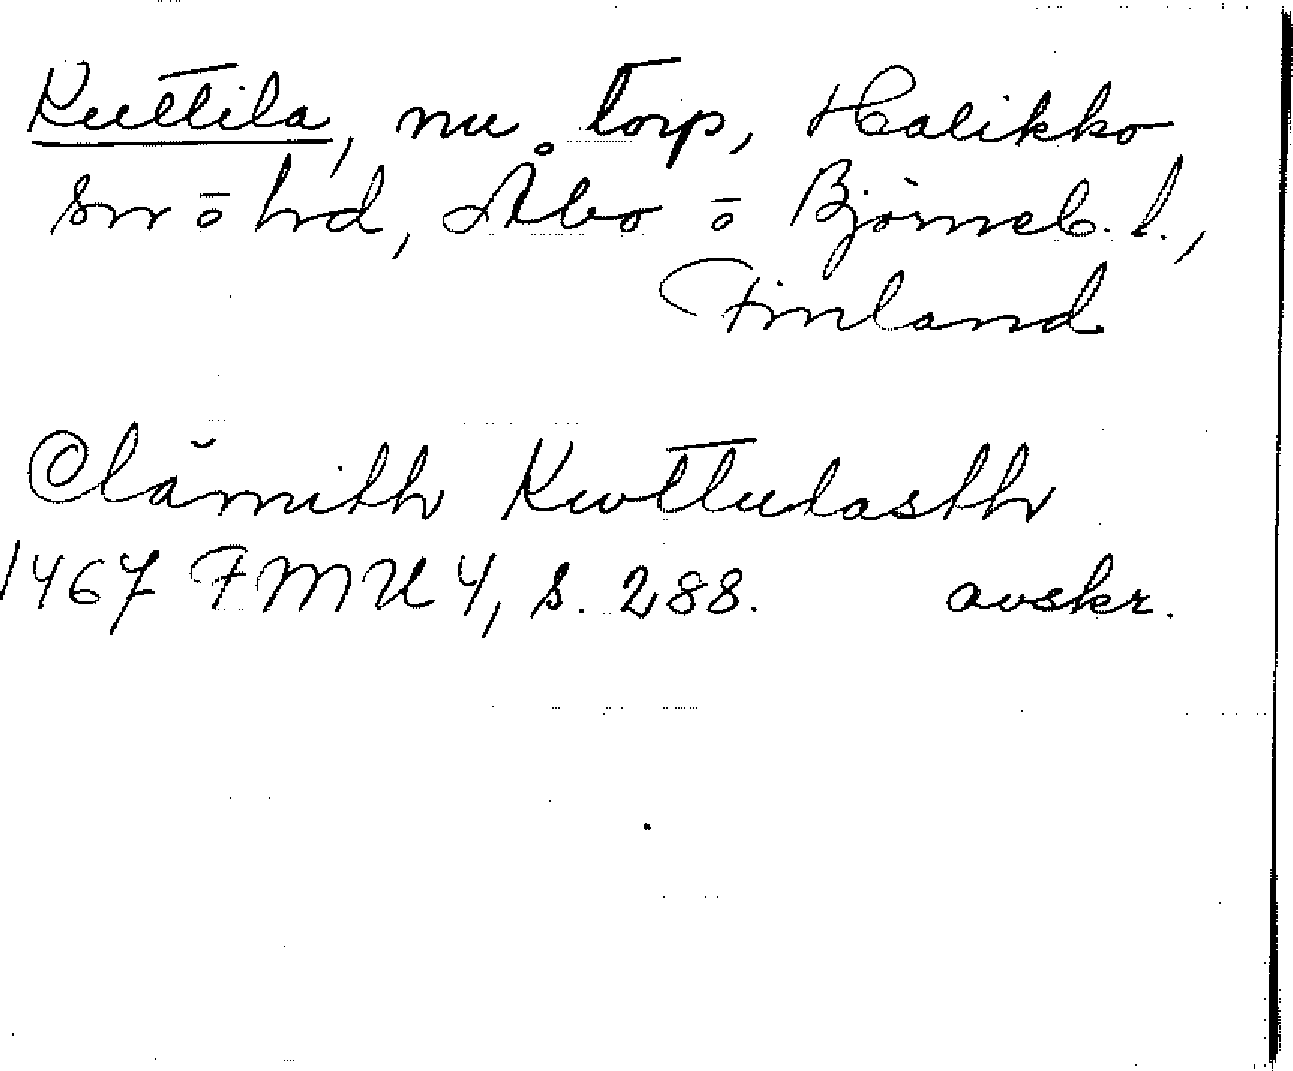 Kuttila, nu torp, Halikko
sn ō hd, Åbo ō Björneb. l.,
Finland
Clämith Kwttulasth
1467 FMU 4, s. 288. avskr.